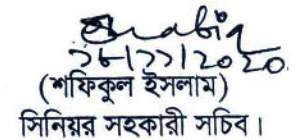 ২৮/১১/২০২০
(শফিকুল ইসলাম)
সিনিয়র সহকারী সচিব।